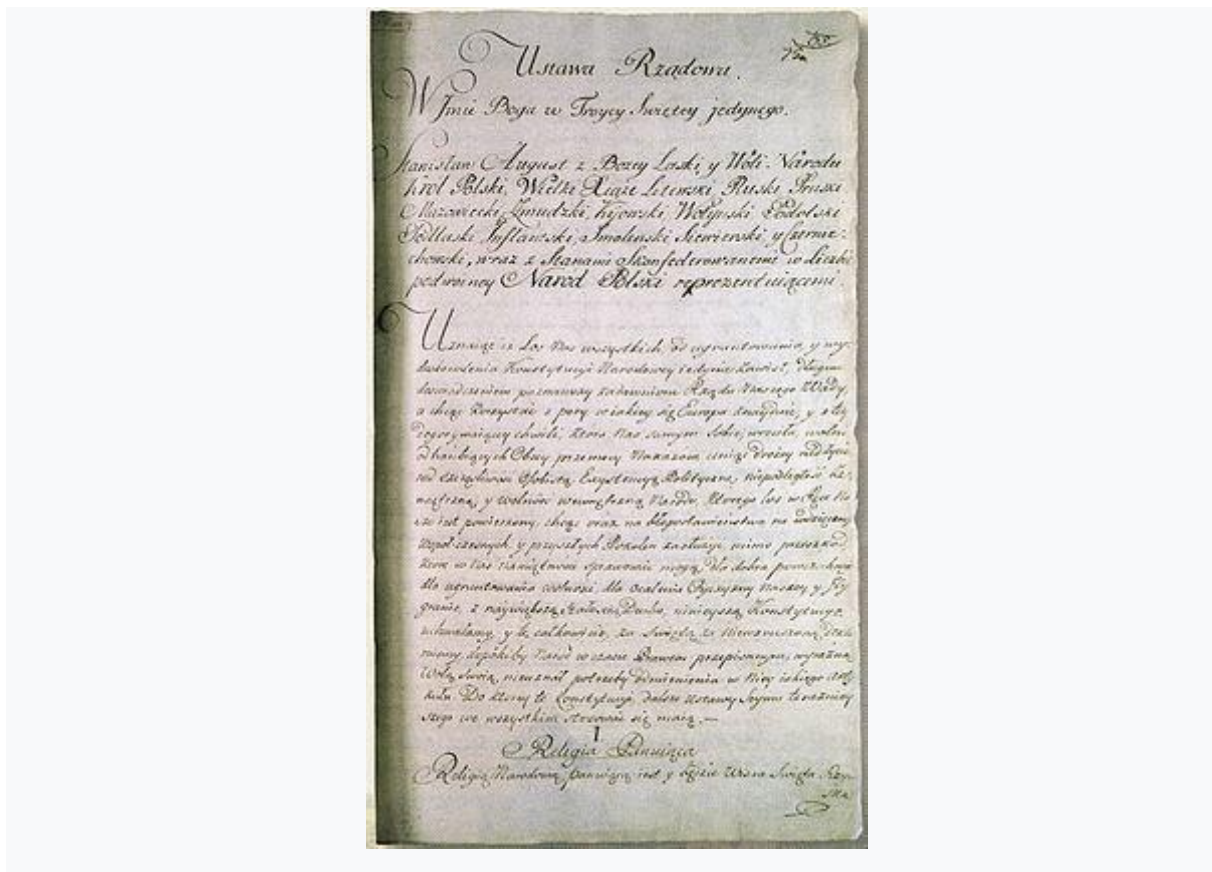 Ustawa Rządowa.
W Jmie Boga w Troycy Swiętey jedynego.
Stanisław August z Bozey Łaski, y Woli Narodu
Krol Polski, Wielki Xiąże Litewski, Ruski Pruski
Mazowiecki, Zmudzki, Kijowski, Wołyński Podolski
Podlaski, Inflantski, Smolenski Siewierski, y Czernie-
chowski, wraz z Stanami Skonfederowanemi w liczbie
podwoyney Narod Polski reprezentuiącemi.
Uznaiąc iż Los Nas wszystkich, od ugruntowania y wy-
doskonalenia Konstytucyi Narodowey iedynie zawisł, długim
doswiadczeniem poznawszy zadawnione Rządu Naszego Wady,
a chcąc korzystać z pory w iakiey się Europa znayduie, y z tey
dogorywaiącey chwili, ktora Nas samym sobie wrociła, wolni
od hanbiących Obcey przemocy Nakazow, ceniąc drożey nad życie
nad szczęśliwość Osobistą, Exystencyą Polityczną, niepodległość ze-
wnętrzną, y wolność wewnętrzną Narodu, ktorego los w Ręce Na-
sze iest powierzony, chcąc oraz na błogosławieństwo na wdzięczność
współczesnych y przyszłych Pokoleń zasłużyć, mimo przeszkod
ktore w Nas namiętności sprawować mogą, dla dobra powszechnego
dla ugruntowania wolności, dla ocalenia Oyczyzny Naszey y Jey
granic, z naywiększą stałością Ducha, ninieyszą Konstytucyę
uchwalamy, y tę całkowicie, za świętą, za niewzruszoną dekla-
ruiemy, dopóki by Narod w czasie Prawem przepisanym, wyraźną
Wolą swoią, nieuznał potrzeby odmienienia w Niey iakiego arty-
kułu. Do ktorey to Konstytucyi, dalsze Ustawy Seymu teraźniey-
szego we wszystkim stosować się maią.—
I
Religia Panuiąca
Religią Narodową panuiącą iest y będzie Wiara Święta Rzym-
ska